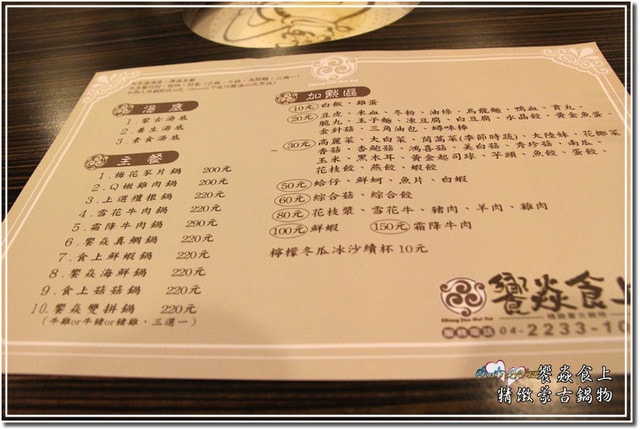 湯底
1.蒙古湯底
2.養生湯底
3.素食湯底
主餐
1.梅花豕片鍋 200元
2.Q嫩雞肉鍋 200元
3.上選檀根鍋 220元
4.雪花牛肉鍋 220元
5.霜降牛肉鍋 290元
6.饗焱真鯛鍋 220元
7.食上鮮蝦鍋 220元
8.饗焱海鮮鍋 220元
9.食上菇菇鍋 220元
10.饗焱雙拼鍋 220元
(牛雞or牛豬or豬雞，三選一)
加點區
10元 白飯、雞蛋
20元 豆皮、米血、冬粉、油條、烏龍麵、鴨血、貢丸、
脆丸、玉子麵、凍豆腐、白豆腐、水晶餃、黃金魚蛋、
金針菇、三角油包、鱘味棒
30元 高麗菜、大白菜、茼萵菜(季節時蔬)、大陸妹、花椰菜
香菇、香鮑菇、鴻喜菇、美白菇、秀珍菇、南瓜、
玉米、黑木耳、黃金起司球、芋頭、魚餃、蛋餃、
花枝餃、燕餃、蝦餃
50元 蛤仔、鮮蚵、魚片、白蝦
60元 綜合菇、綜合餃
80元 花枝漿、雪花牛、豬肉、羊肉、雞肉
100元 鮮蝦 150元 霜降牛肉
檸檬冬瓜冰沙續杯10元
饗焱食上
精緻蒙古鍋物
04-2233-10
饗焱食上
精緻蒙古鍋物